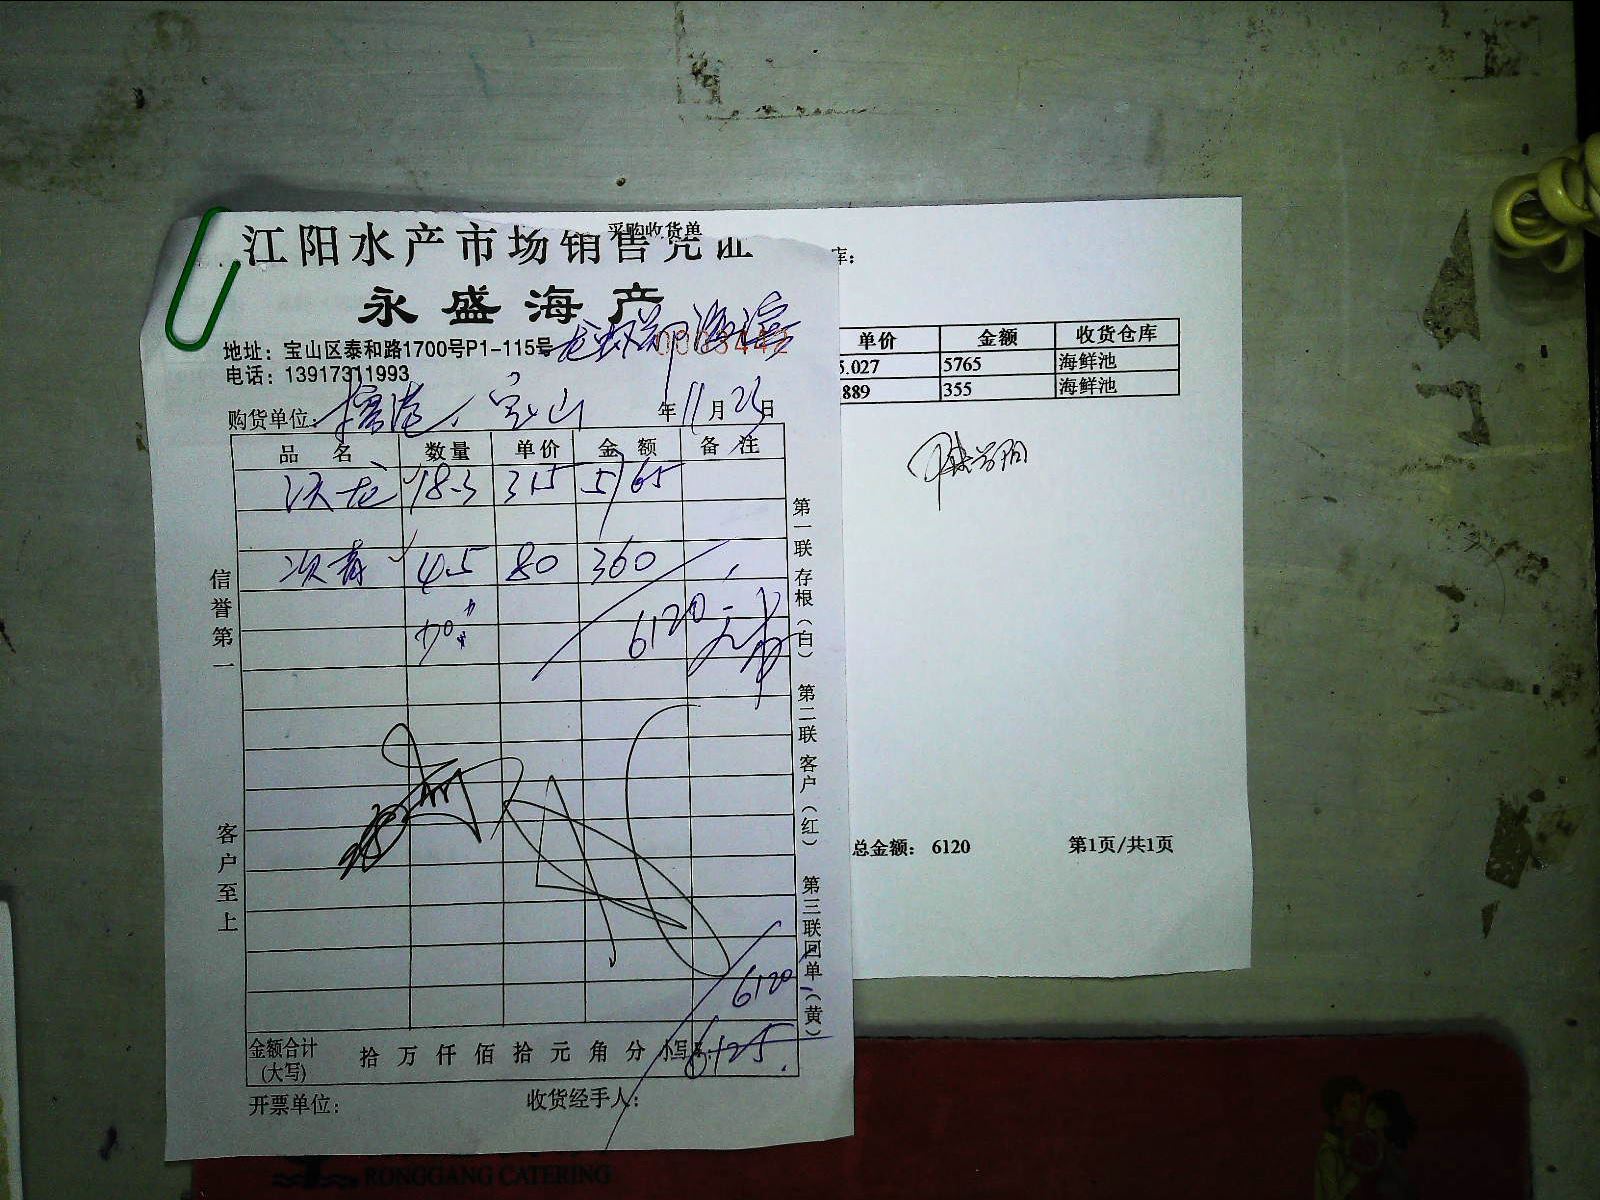 采购收货单
江阳水产市场销售凭证
永盛海产
地址：宝山区泰和路1700号P1-115号
电话：13917311993
购货单位： 宝山 年11月23日
品名 数量 单价 金额 备注
沃龙 18.3 315 5765
次青 4.5 80 360
6120元
6120
金额合计(大写) 拾 万 仟 佰 拾 元 角 分 小写 6125
开票单位： 收货经手人：
信誉第一
客户至上
第一联存根（白） 第二联客户（红） 第三联回单（黄）
库：
单价 金额 收货仓库
5.027 5765 海鲜池
889 355 海鲜池
总金额： 6120 第1页/共1页
RONGGANG CATERING